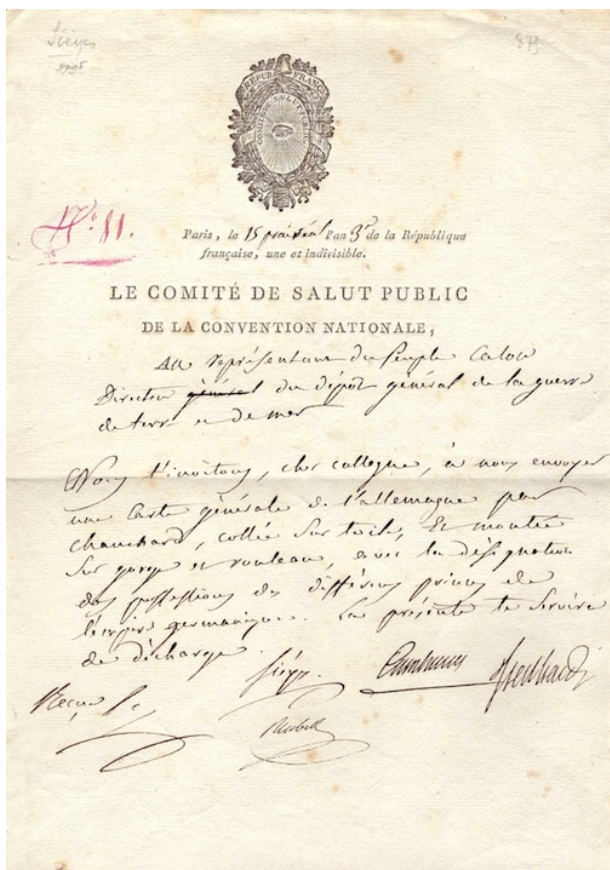 Sieyes
1795
879
RÉPUB. FRANÇ.
COMITÉ DE SALUT PUBLIC
N.º 11.
Paris, le 15 prairéal l'an 3e de la République
française, une et indivisible.
LE COMITÉ DE SALUT PUBLIC
DE LA CONVENTION NATIONALE,
Au représentant du Peuple Calon
Directeur général du dépôt général de la guerre
de terre et de mer
Nous t'invitons, cher collegue, à nous envoyer
une Carte générale de l'allemagne par
chauchard, collée sur toile, Et montée
sur gorge et rouleau, avec la désignation
des possessions des différens princes de
l'empire germanique. La présente te servira
de décharge.
Sieyes. Cambaceres Treilhard
Reçu le
Rewbell